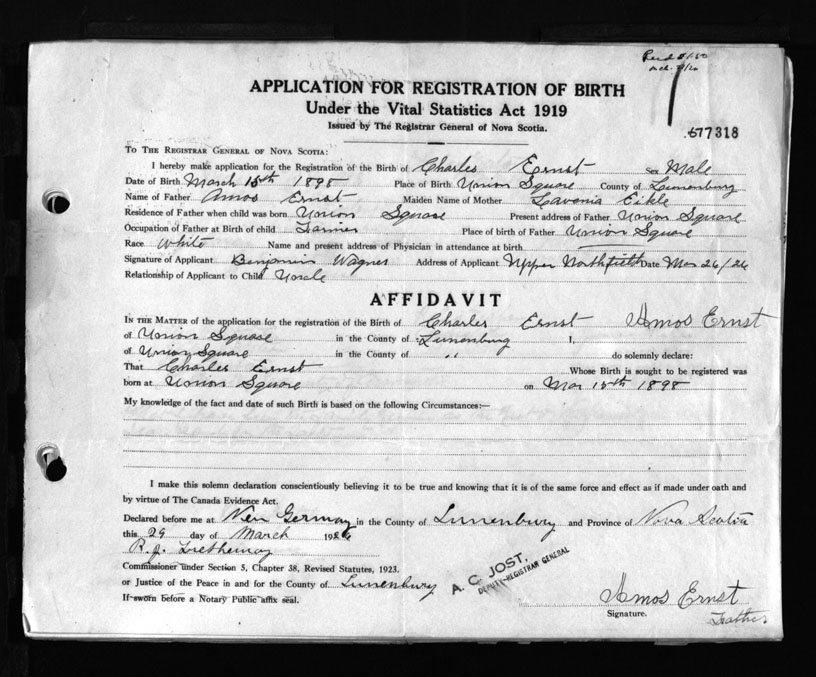 APPLICATION FOR REGISTRATION OF BIRTH
Under the Vital Statistics Act 1919
Issued by The Registrar General of Nova Scotia.
677318
TO THE REGISTRAR GENERAL OF NOVA SCOTIA:
I hereby make application for the Registration of the Birth of Charles Ernst Sex Male
Date of Birth March 15th 1898 Place of Birth Union Square County of Lunenburg
Name of Father Amos Ernst Maiden Name of Mother Lavonia Eikle
Residence of Father when child was born Union Square Present address of Father Union Square
Occupation of Father at Birth of child Farmer Place of birth of Father Union Square
Race White Name and present address of Physician in attendance at birth
Signature of Applicant Benjamin Wagner Address of Applicant Upper Northfield Date Mar 26/26
Relationship of Applicant to Child Uncle
AFFIDAVIT
IN THE MATTER of the application for the registration of the Birth of Charles Ernst Amos Ernst
of Union Square in the County of Lunenburg I,
of Union Square in the County of " do solemnly declare:
That Charles Ernst Whose Birth is sought to be registered was
born at Union Square on Mar 15th 1898
My knowledge of the fact and date of such Birth is based on the following Circumstances:—
I make this solemn declaration conscientiously believing it to be true and knowing that it is of the same force and effect as if made under oath and
by virtue of The Canada Evidence Act.
Declared before me at New Germany in the County of Lunenburg and Province of Nova Scotia
this 29 day of March 1926
R. J.
Commissioner under Section 5, Chapter 38, Revised Statutes, 1923.
or Justice of the Peace in and for the County of Lunenburg
If sworn before a Notary Public affix seal.
A. C. JOST,
DEPUTY-REGISTRAR GENERAL
Amos Ernst
Signature.
Father